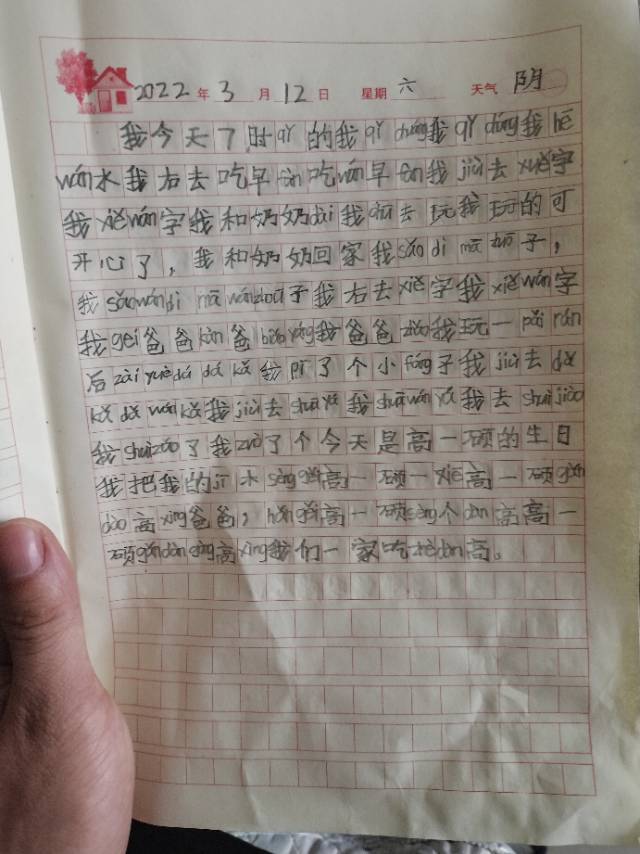 2022 年 3 月 12 日 星期 六 天气 阴
我今天7时qǐ的我qǐ chúng我qǐ chúng我hē
wán水我右去吃早fàn吃wán早fàn我jiù去xiě字
我xiě wán字我和奶奶dài我qù去玩我玩的可
开心了，我和奶奶回家我sǎo dì mā zhuō子，
我sǎo wán dì mā wán zhuō子我右去xiě字我xiě wán字
我gěi爸爸kàn爸biǎo yáng我爸爸zhǎo我玩一pái rán
后zài yuè dú dǎ kǎ pī了个小fáng子我jiù去dǎ
kǎ dǎ wán kǎ我jiù去shuā yá我shuā wán yá我去shuì jiào
我shuì zháo了我zuò了个今天是高一硕的生日
我把我的jī水sòng gěi高一硕一xiē高一硕gǎn
dào高xìng爸爸，hái gěi高一硕sòng个dàn高高一
硕gǎn dào gāo xìng我们一家吃dàn高。